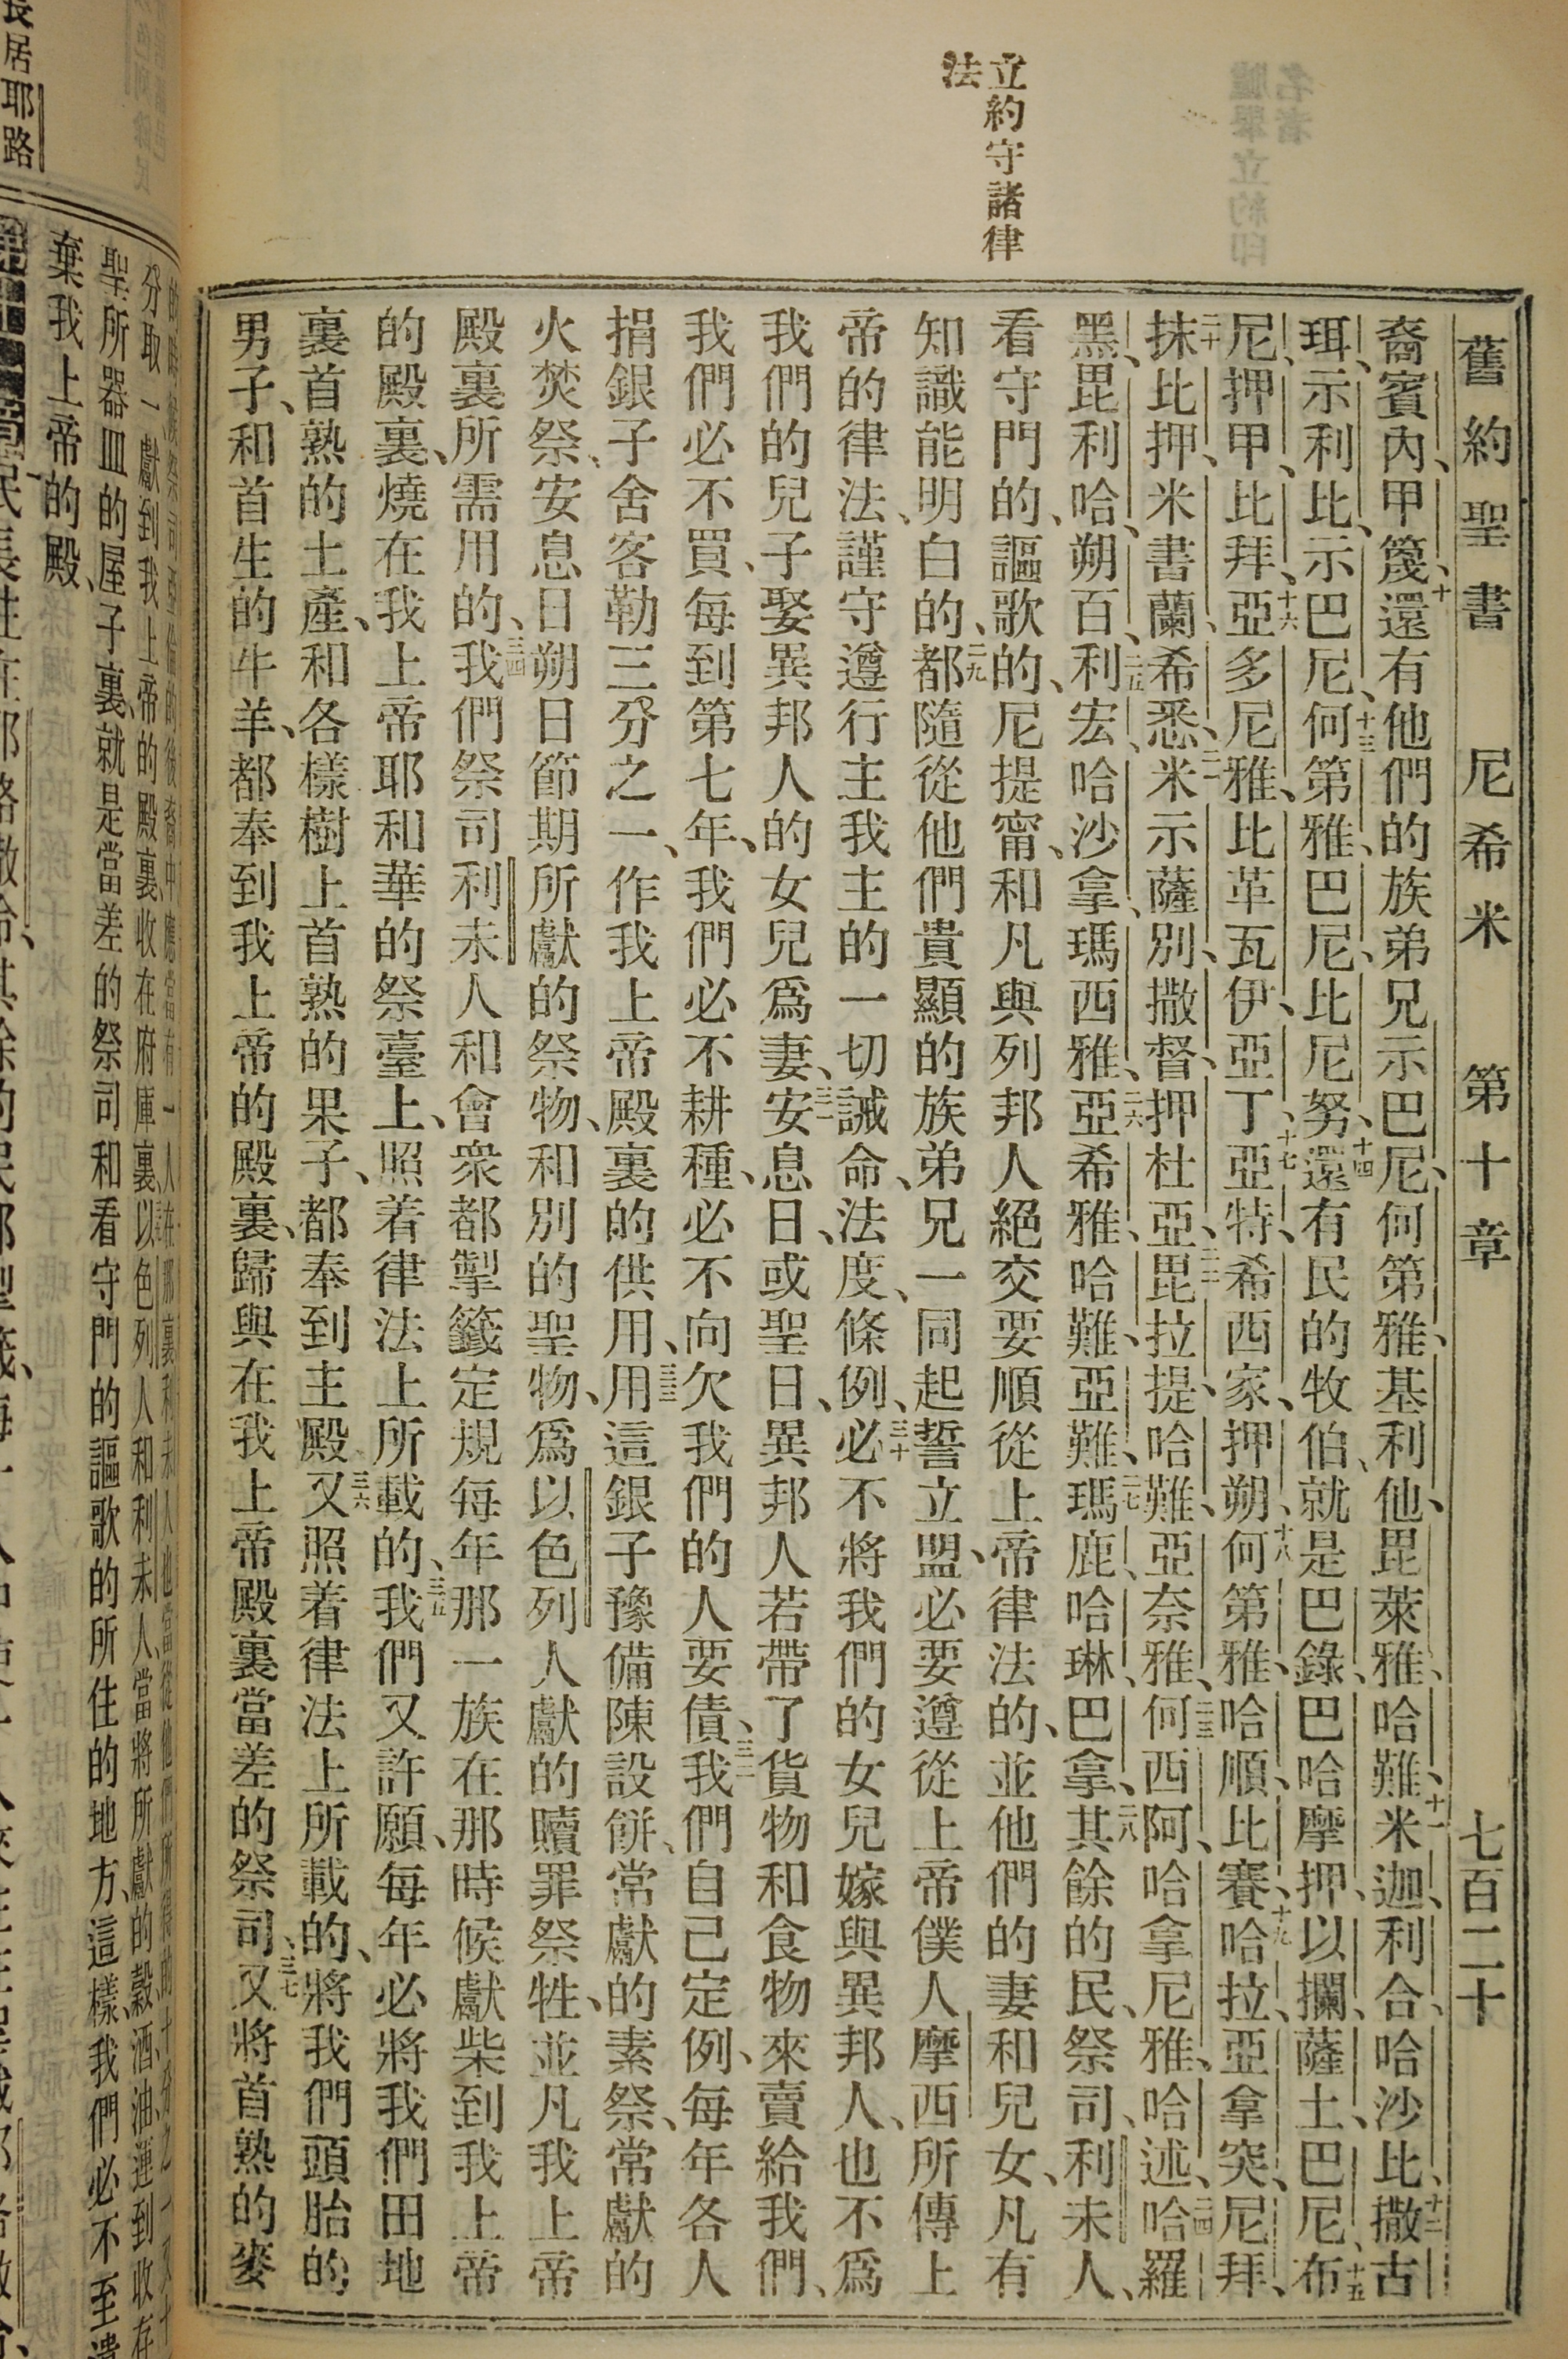 舊約聖書 尼希米 第十章 七百二十
立約守諸律
法
裔賓內、甲篾、十還有他們的族弟兄示巴尼、何第雅、基利他、毘萊雅、哈難、十一米迦、利合、哈沙比、十二撒古
珥、示利比、示巴尼、十三何第雅、巴尼、比尼努、十四還有民的牧伯、就是巴錄、巴哈摩押、以攔、薩土、巴尼、十五布
尼、押甲、比拜、十六亞多尼雅、比革瓦伊、亞丁、十七亞特、希西家、押朔、十八何第雅、哈順、比賽、十九哈拉、亞拿突、尼拜、
二十抹比押、米書蘭、希悉、二一米示薩別、撒督、押杜亞、二二毘拉提、哈難、亞奈雅、二三何西阿、哈拿尼雅、哈述、二四哈羅
黑、毘利哈、朔百、二五利宏、哈沙拿、瑪西雅、二六亞希雅、哈難、亞難、二七瑪鹿、哈琳、巴拿、二八其餘的民、祭司、利未人、
看守門的、謳歌的、尼提甯、和凡與列邦人絕交要順從上帝律法的、並他們的妻和兒女、凡有
知識能明白的、二九都隨從他們貴顯的族弟兄一同起誓立盟、必要遵從上帝僕人摩西所傳上
帝的律法、謹守遵行主我主的一切誡命、法度、條例、三十必不將我們的女兒嫁與異邦人、也不爲
我們的兒子娶異邦人的女兒爲妻、三一安息日、或聖日、異邦人若帶了貨物和食物來賣給我們、
我們必不買、每到第七年、我們必不耕種、必不向欠我們的人要債、三二我們自己定例、每年各人
捐銀子舍客勒三分之一、作我上帝殿裏的供用、三三用這銀子豫備陳設餅、常獻的素祭、常獻的
火焚祭、安息日朔日節期所獻的祭物、和別的聖物、爲以色列人獻的贖罪祭牲、並凡我上帝
殿裏所需用的、三四我們祭司利未人和會衆都掣籤定規每年那一族在那時候獻柴到我上帝
的殿裏、燒在我上帝耶和華的祭臺上、照着律法上所載的、三五我們又許願、每年必將我們田地
裏首熟的土產、和各樣樹上首熟的果子、都奉到主殿三六又照着律法上所載的、將我們頭胎的
男子、和首生的牛羊、都奉到我上帝的殿裏、歸與在我上帝殿裏當差的祭司、三七又將首熟的麥
分取一獻到我上帝的殿裏收在府庫裏以色列人和利未人、當將所獻的穀、酒、油、運到收存
聖所器皿的屋子裏、就是當差的祭司和看守門的謳歌的所住的地方、這樣、我們必不至遺
棄我上帝的殿、